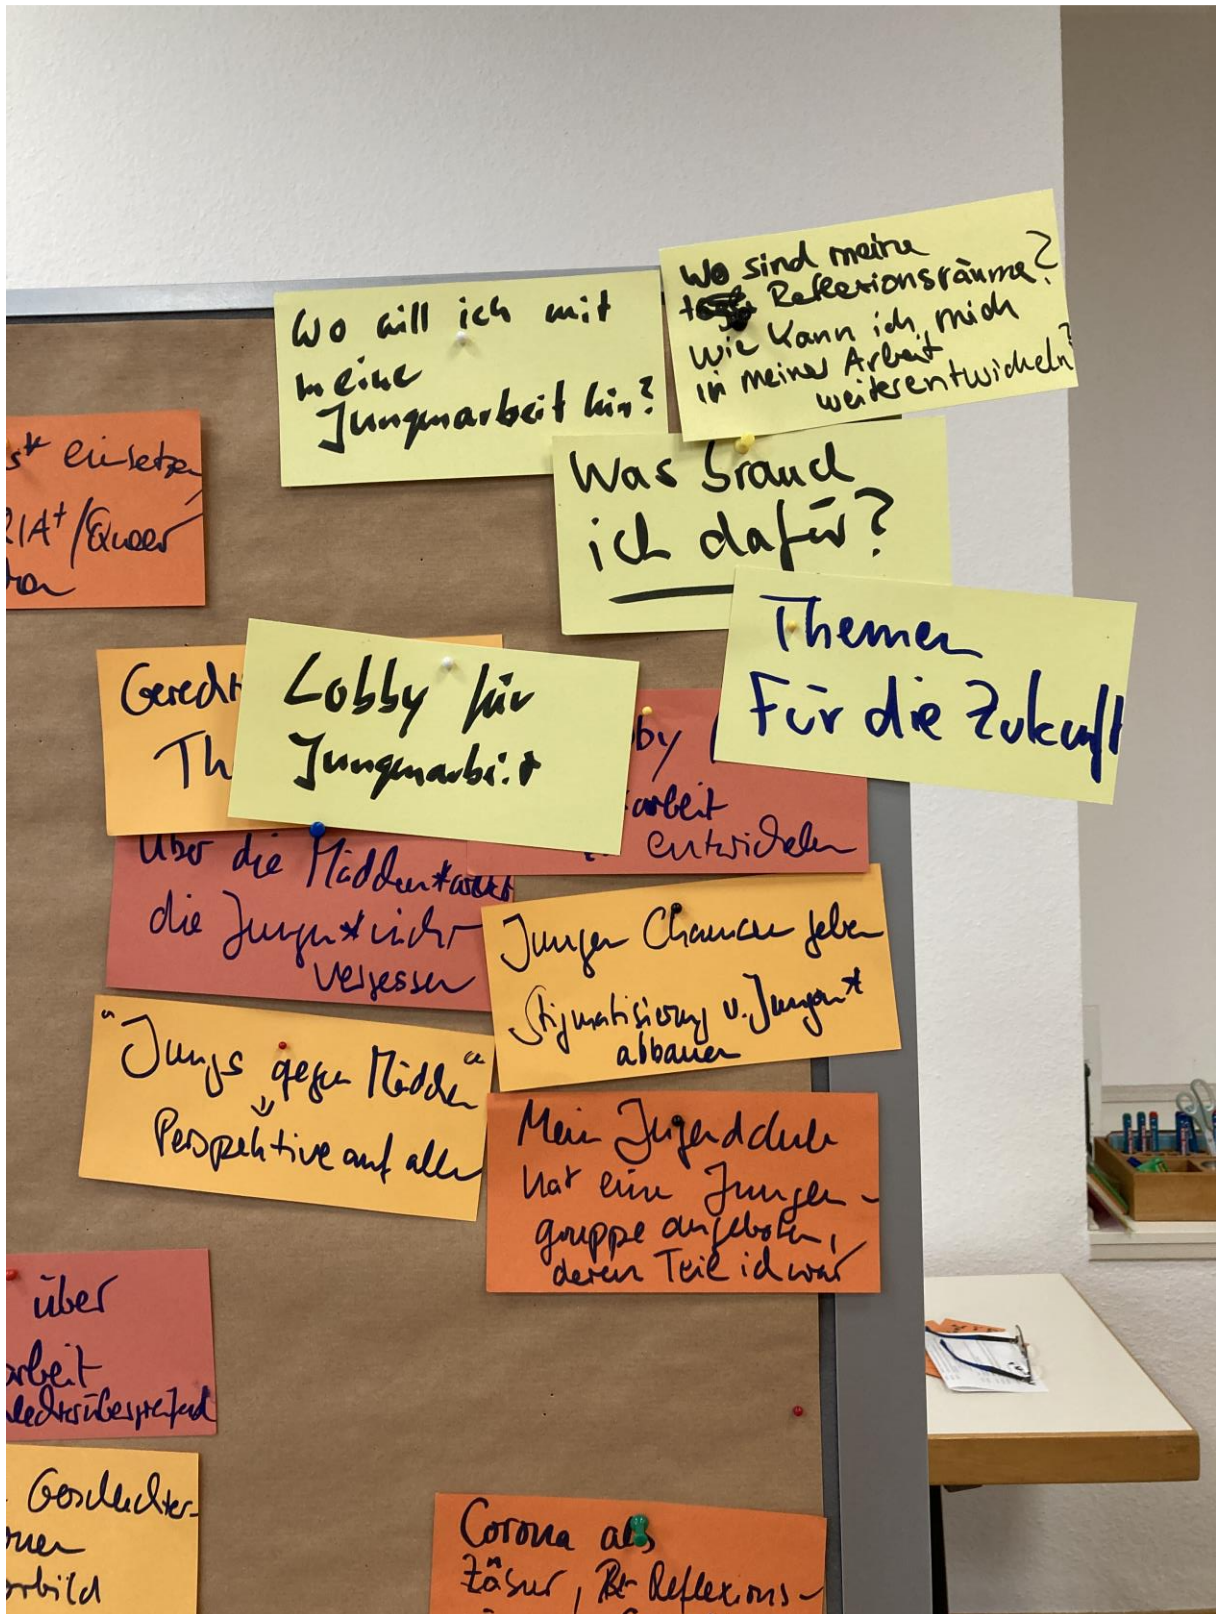 Wo will ich mit
meine
Jungenarbeit hin?
Wo sind meine
Reflexionsräume?
Wie kann ich mich
in meiner Arbeit
weiterentwickeln?
Was brauch
ich dafür?
Themen
Für die Zukunft
s* einsetzen
QIA+/Queer
Gerecht
Th
Lobby für
Jungenarbeit
by
arbeit
entwickeln
Über die Mädchen*arbeit
die Jungen* nicht
vergessen
Jungen Chancen geben
Stigmatisierung v. Jungen*
abbauen
"Jungs gegen Mädchen"
Perspektive auf alle
Mein Jugendclub
hat eine Jungen-
gruppe angeboten,
deren Teil ich war
über
arbeit
lechterübergreifend
Geschlechter-
orbild
Corona als
Zäsur, Reflexions-